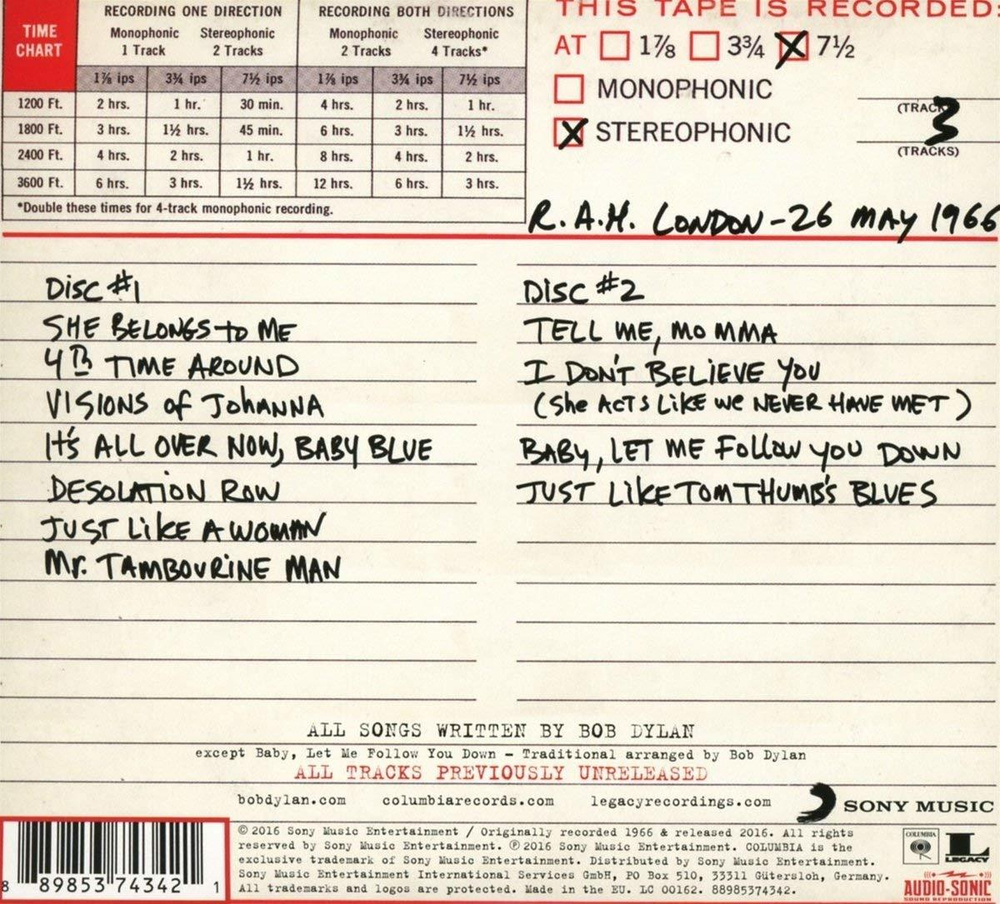 TIME CHART
RECORDING ONE DIRECTION
RECORDING BOTH DIRECTIONS
Monophonic 1 Track
Stereophonic 2 Tracks
Monophonic 2 Tracks
Stereophonic 4 Tracks*
1⅞ ips 3¾ ips 7½ ips 1⅞ ips 3¾ ips 7½ ips
1200 Ft. 2 hrs. 1 hr. 30 min. 4 hrs. 2 hrs. 1 hr.
1800 Ft. 3 hrs. 1½ hrs. 45 min. 6 hrs. 3 hrs. 1½ hrs.
2400 Ft. 4 hrs. 2 hrs. 1 hr. 8 hrs. 4 hrs. 2 hrs.
3600 Ft. 6 hrs. 3 hrs. 1½ hrs. 12 hrs. 6 hrs. 3 hrs.
*Double these times for 4-track monophonic recording.
THIS TAPE IS RECORDED:
AT 1⅞ 3¾ X 7½
MONOPHONIC
(TRACK
X STEREOPHONIC
3
(TRACKS)
R.A.H. LONDON - 26 MAY 1966
DISC #1
SHE BELONGS TO ME
4th TIME AROUND
VISIONS of JOhANNA
IT'S ALL OVER NOW, BABY BLUE
DESOLATION ROW
JUST LIKE A WOMAN
Mr. TAMBOURINE MAN
DISC #2
TELL ME, MOMMA
I DON'T BELIEVE YOU
(She ACTS LIKE We NEVER HAVE MET)
BABY, LET ME Follow you DOWN
JUST LIKE TOM THUMB'S BLUES
ALL SONGS WRITTEN BY BOB DYLAN
except Baby, Let Me Follow You Down – Traditional arranged by Bob Dylan
ALL TRACKS PREVIOUSLY UNRELEASED
bobdylan.com columbiarecords.com legacyrecordings.com
SONY MUSIC
8 89853 74342 1
© 2016 Sony Music Entertainment / Originally recorded 1966 & released 2016. All rights
reserved by Sony Music Entertainment. ℗ 2016 Sony Music Entertainment. COLUMBIA is the
exclusive trademark of Sony Music Entertainment. Distributed by Sony Music Entertainment.
Sony Music Entertainment International Services GmbH, PO Box 510, 33311 Gütersloh, Germany.
All trademarks and logos are protected. Made in the EU. LC 00162. 88985374342.
COLUMBIA
L
LEGACY
AUDIO-SONIC
SOUND REPRODUCTION